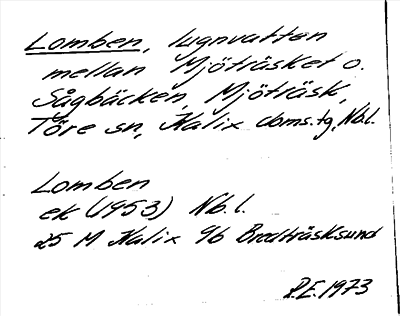 Lomben, lugnvatten
mellan Mjöträsket o.
Sågbäcken, Mjöträsk,
Töre sn, Kalix doms.tg, Nb.l.
Lomben
ek (1953) Nb.l.
25 M Kalix 9b Bredträsksund
P.E. 1973